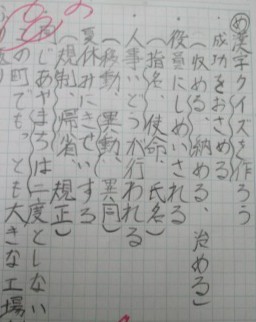 め漢字クイズを作ろう
成功をおさめる
(収める、納める、治める)
役員にしめいされる
(指名、使命、氏名)
人事いどうが行われる
(移動、異動、異同)
夏休みにきせいする
(規制、帰省、規正)
同じあやまちは二度としない
の町でもっとも大きな工場